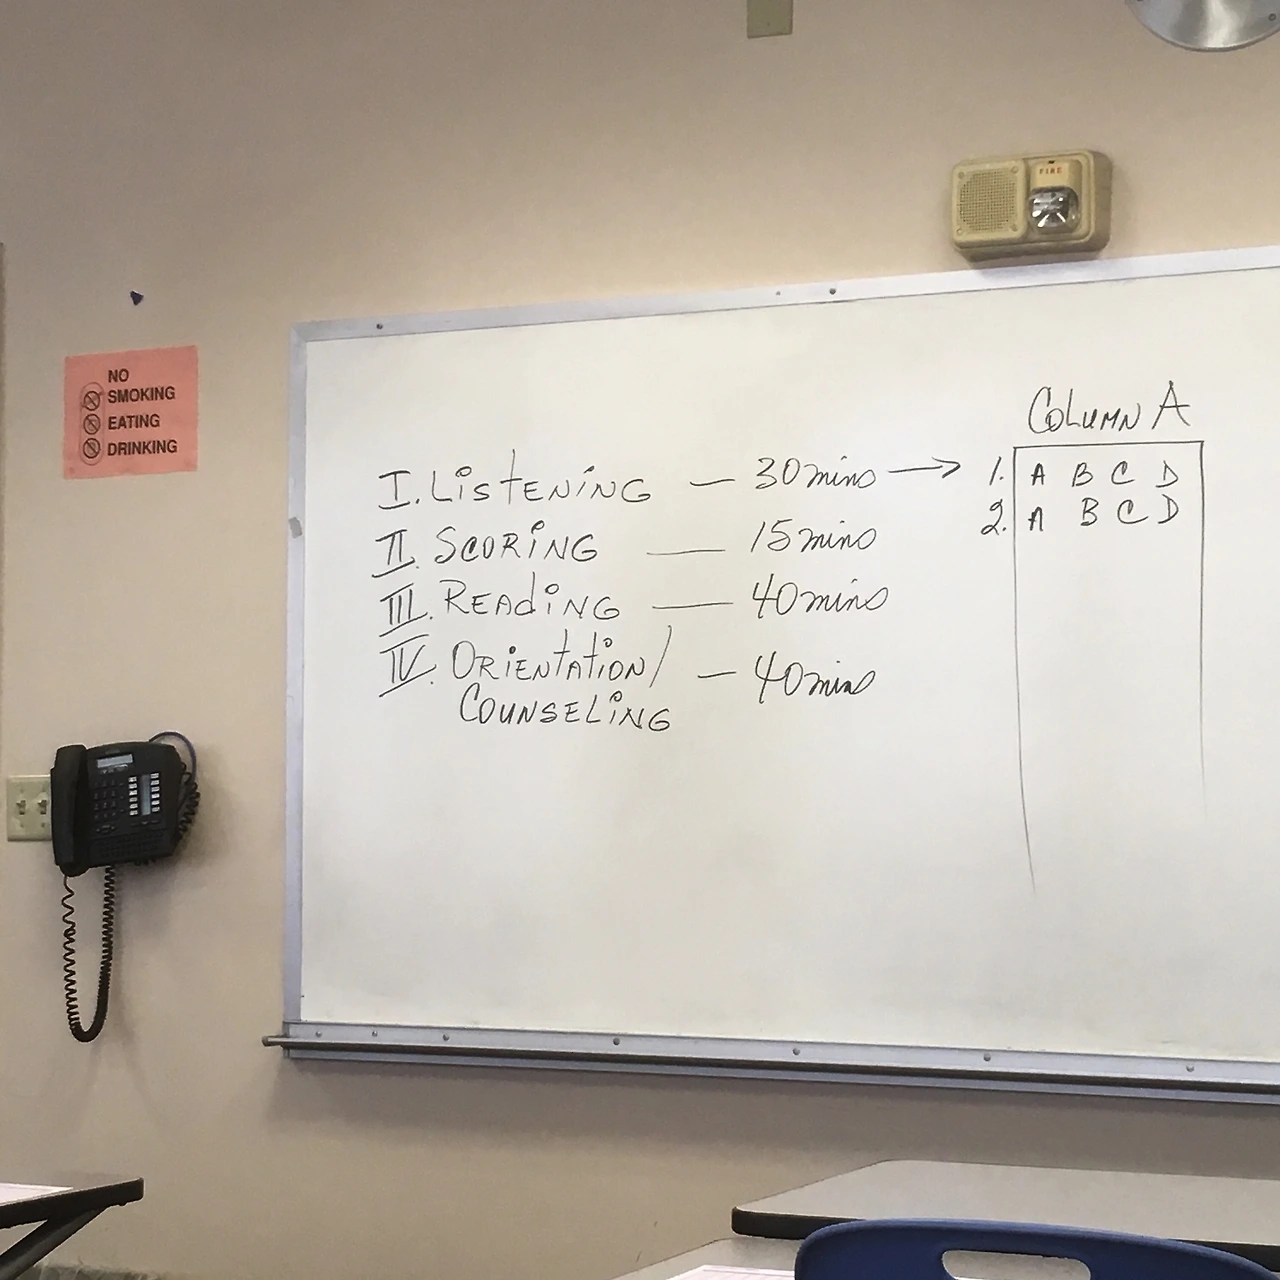 NO
SMOKING
EATING
DRINKING
FIRE
COLUMN A
I. LiSTENiNG — 30 mins → 1. A B C D
2. A B C D
II. SCORiNG — 15 mins
III. READiNG — 40 mins
IV. ORiENTATiON/ — 40 mins
COUNSELiNG